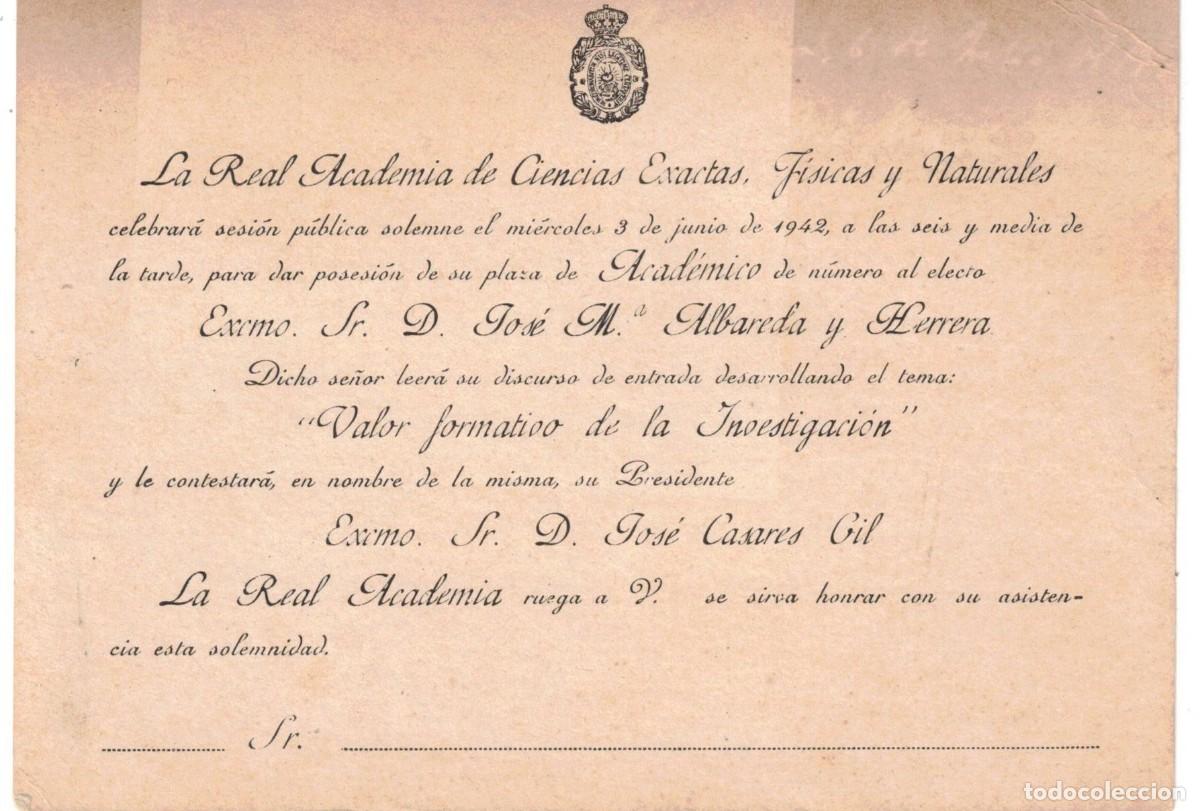 La Real Academia de Ciencias Exactas, Físicas y Naturales
celebrará sesión pública solemne el miércoles 3 de junio de 1942, a las seis y media de
la tarde, para dar posesión de su plaza de Académico de número al electo
Excmo. Sr. D. José M.ª Albareda y Herrera
Dicho señor leerá su discurso de entrada desarrollando el tema:
"Valor formativo de la Investigación"
y le contestará, en nombre de la misma, su Presidente
Excmo. Sr. D. José Casares Gil
La Real Academia ruega a V. se sirva honrar con su asisten-
cia esta solemnidad.
Sr.
todocoleccion